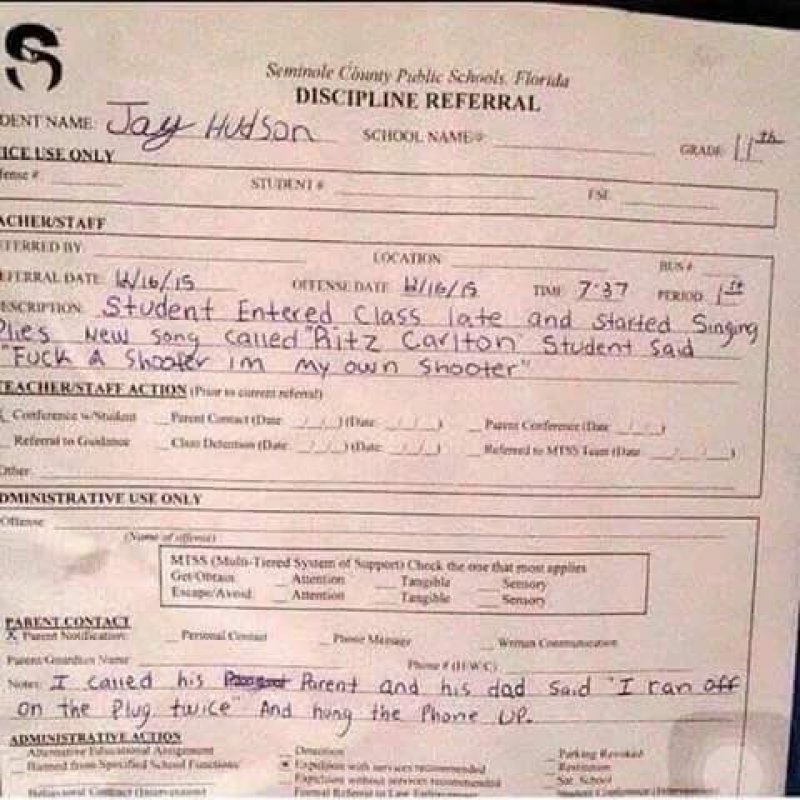 Seminole County Public Schools, Florida
DISCIPLINE REFERRAL
DENT NAME: Jay Hudson SCHOOL NAME/# GRADE 11th
ICE USE ONLY
fense # STUDENT # ESE
ACHER/STAFF
EFERRED BY LOCATION BUS #
EFERRAL DATE 12/16/15 OFFENSE DATE 12/16/15 TIME 7:37 PERIOD 1st
ESCRIPTION: Student Entered Class late and started Singing
Plies New song called "Ritz Carlton" Student Said
"Fuck a shooter im my own shooter"
TEACHER/STAFF ACTION (Prior to current referral)
Conference w/Student Parent Contact (Date / / ) (Date / / ) Parent Conference (Date / / )
Referral to Guidance Class Detention (Date / / ) (Date / / ) Referred to MTSS Team (Date / / )
Other:
DMINISTRATIVE USE ONLY
Offense
(Name of offense)
MTSS (Multi-Tiered System of Support) Check the one that most applies
Get/Obtain: Attention Tangible Sensory
Escape/Avoid: Attention Tangible Sensory
PARENT CONTACT
X Parent Notification: Personal Contact Phone Message Written Communication
Parent/Guardian Name Phone # (H/W/C)
Notes: I called his Parent and his dad said "I ran off
on the Plug twice" And hung the Phone UP.
ADMINISTRATIVE ACTION
Alternative Educational Assignment Detention Parking Revoked
Banned from Specified School Functions Expulsion with services recommended Restitution
Expulsion without services recommended Sat. School
Behavioral Contract (Intervention) Formal Referral to Law Enforcement Student Conference (Intervention)